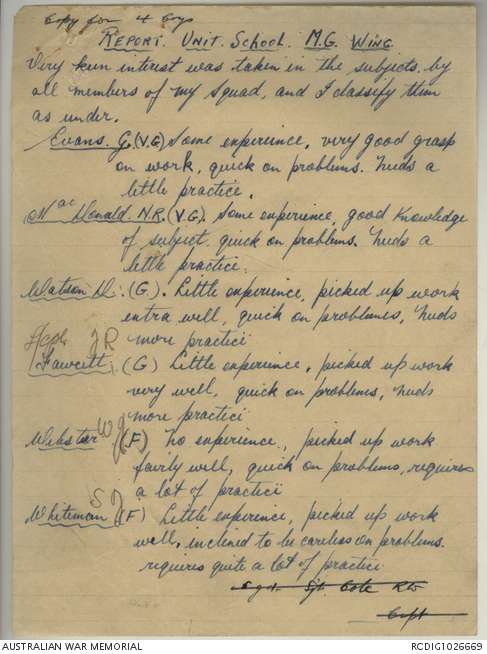 Copy for 4 Coys
REPORT. UNIT. SCHOOL. M.G. WING.
Very keen interest was taken in the subjects by
all members of my squad, and I classify them
as under.
Evans. G. (V.G) Some experience, very good grasp
on work, quick on problems. Needs a
little practice.
MacDonald. N.R. (V.G). Some experience, good knowledge
of subject. quick on problems. Needs a
little practice.
Watson D. (G). Little experience, picked up work
extra well, quick on problems, needs
more practice
J R
Fawcett. (G) Little experience, picked up work
very well, quick on problems, needs
more practice
Webster W J (F) no experience, picked up work
fairly well, quick on problems, requires
a lot of practice
S J
Whiteman (F) Little experience, picked up work
well, inclined to be careless on problems.
requires quite a lot of practice
Sgt. Cole
AUSTRALIAN WAR MEMORIAL
RCDIG1026669